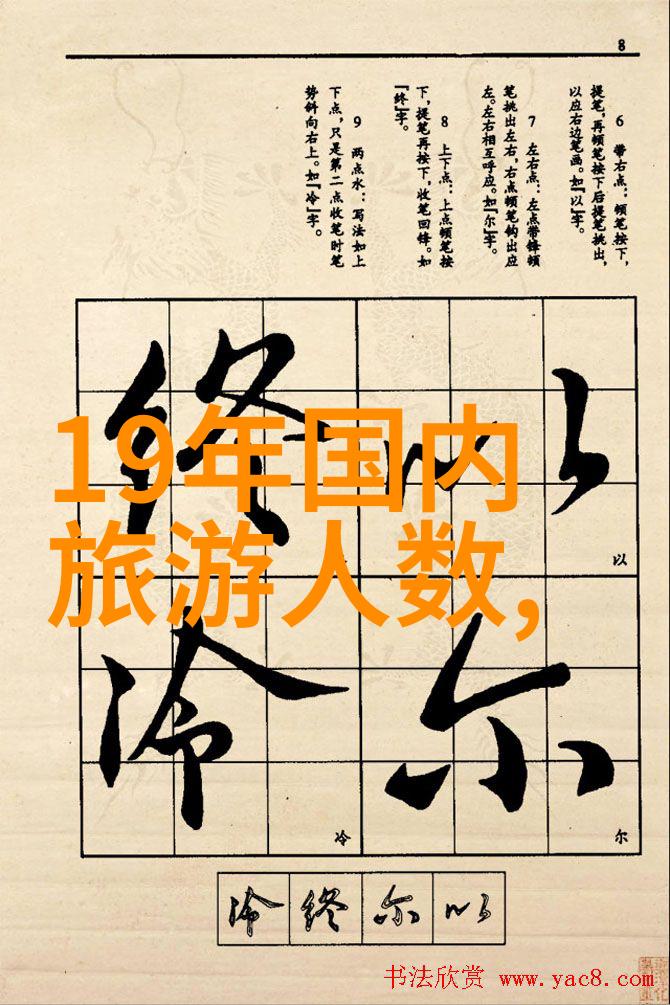 8
6 带右点：顿笔按下，
提笔，再顿笔按下后提笔挑出，
以应右边笔画。如『以』字。
7 左右点：左点带锋顿
笔挑出左右，右点顿笔钩出应
左。左右相互呼应。如『尔』字。
8 上下点：上点顿笔按
下，提笔再按下，收笔回锋。如
『终』字。
9 两点水：写法如上
下点，只是第二点收笔时笔
势斜向右上。如『冷』字。
终 以
以
19年国内
旅游人数，
冷 尔
冷 尔
冷 终 尔 以
书法欣赏 www.yac8.com